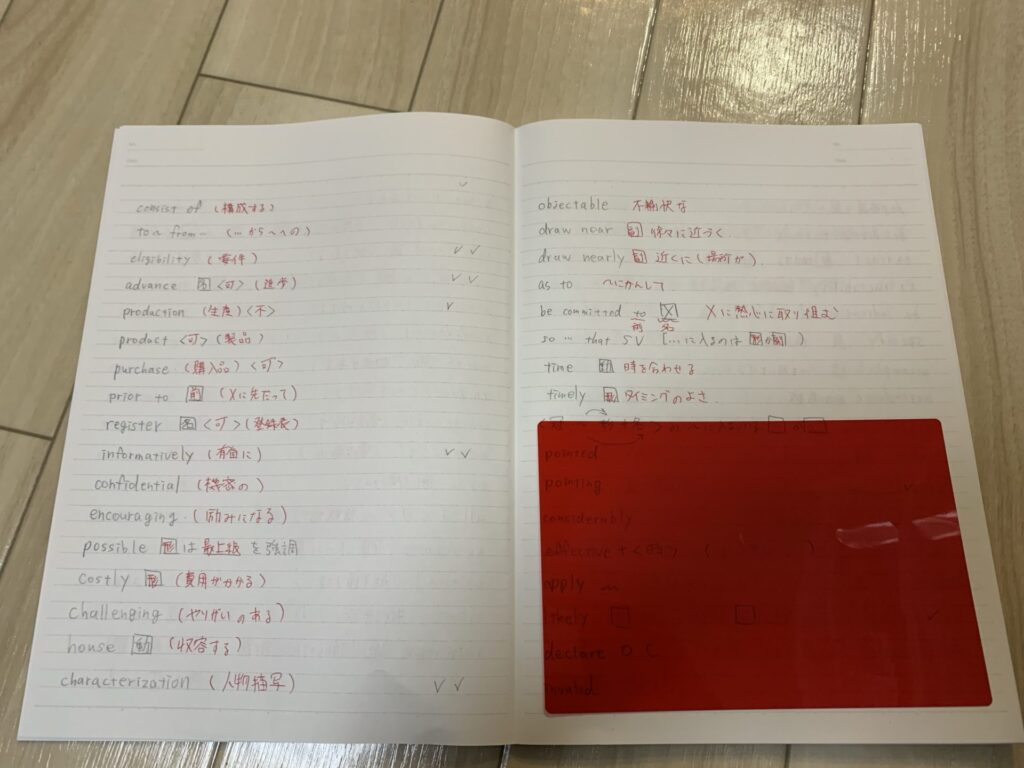 consist of (構成する)
to~ from… (…から~への)
eligibility (要件)
advance 名 <可> (進歩)
production (生産) <不>
product <可> (製品)
purchase (購入品) <可>
prior to 前 (Xに先だって)
register 名 <可> (登録表)
informatively (有益に)
confidential (機密の)
encouraging (励みになる)
possible 形 は 最上級 を強調
costly 形 (費用がかかる)
challenging (やりがいのある)
house 動 (収容する)
characterization (人物描写)
objectable 不愉快な
draw near 副 徐々に近づく.
draw nearly 副 近くに(場所が).
as to ~にかんして
be committed to X Xに熱心に取り組む
前 名
so … that SV […に入るのは 形か副]
time 動 時を合わせる
timely 形 タイミングのよさ.
pointed
pointing
considerably
effective + <時>
apply
likely
declare O C
invalid